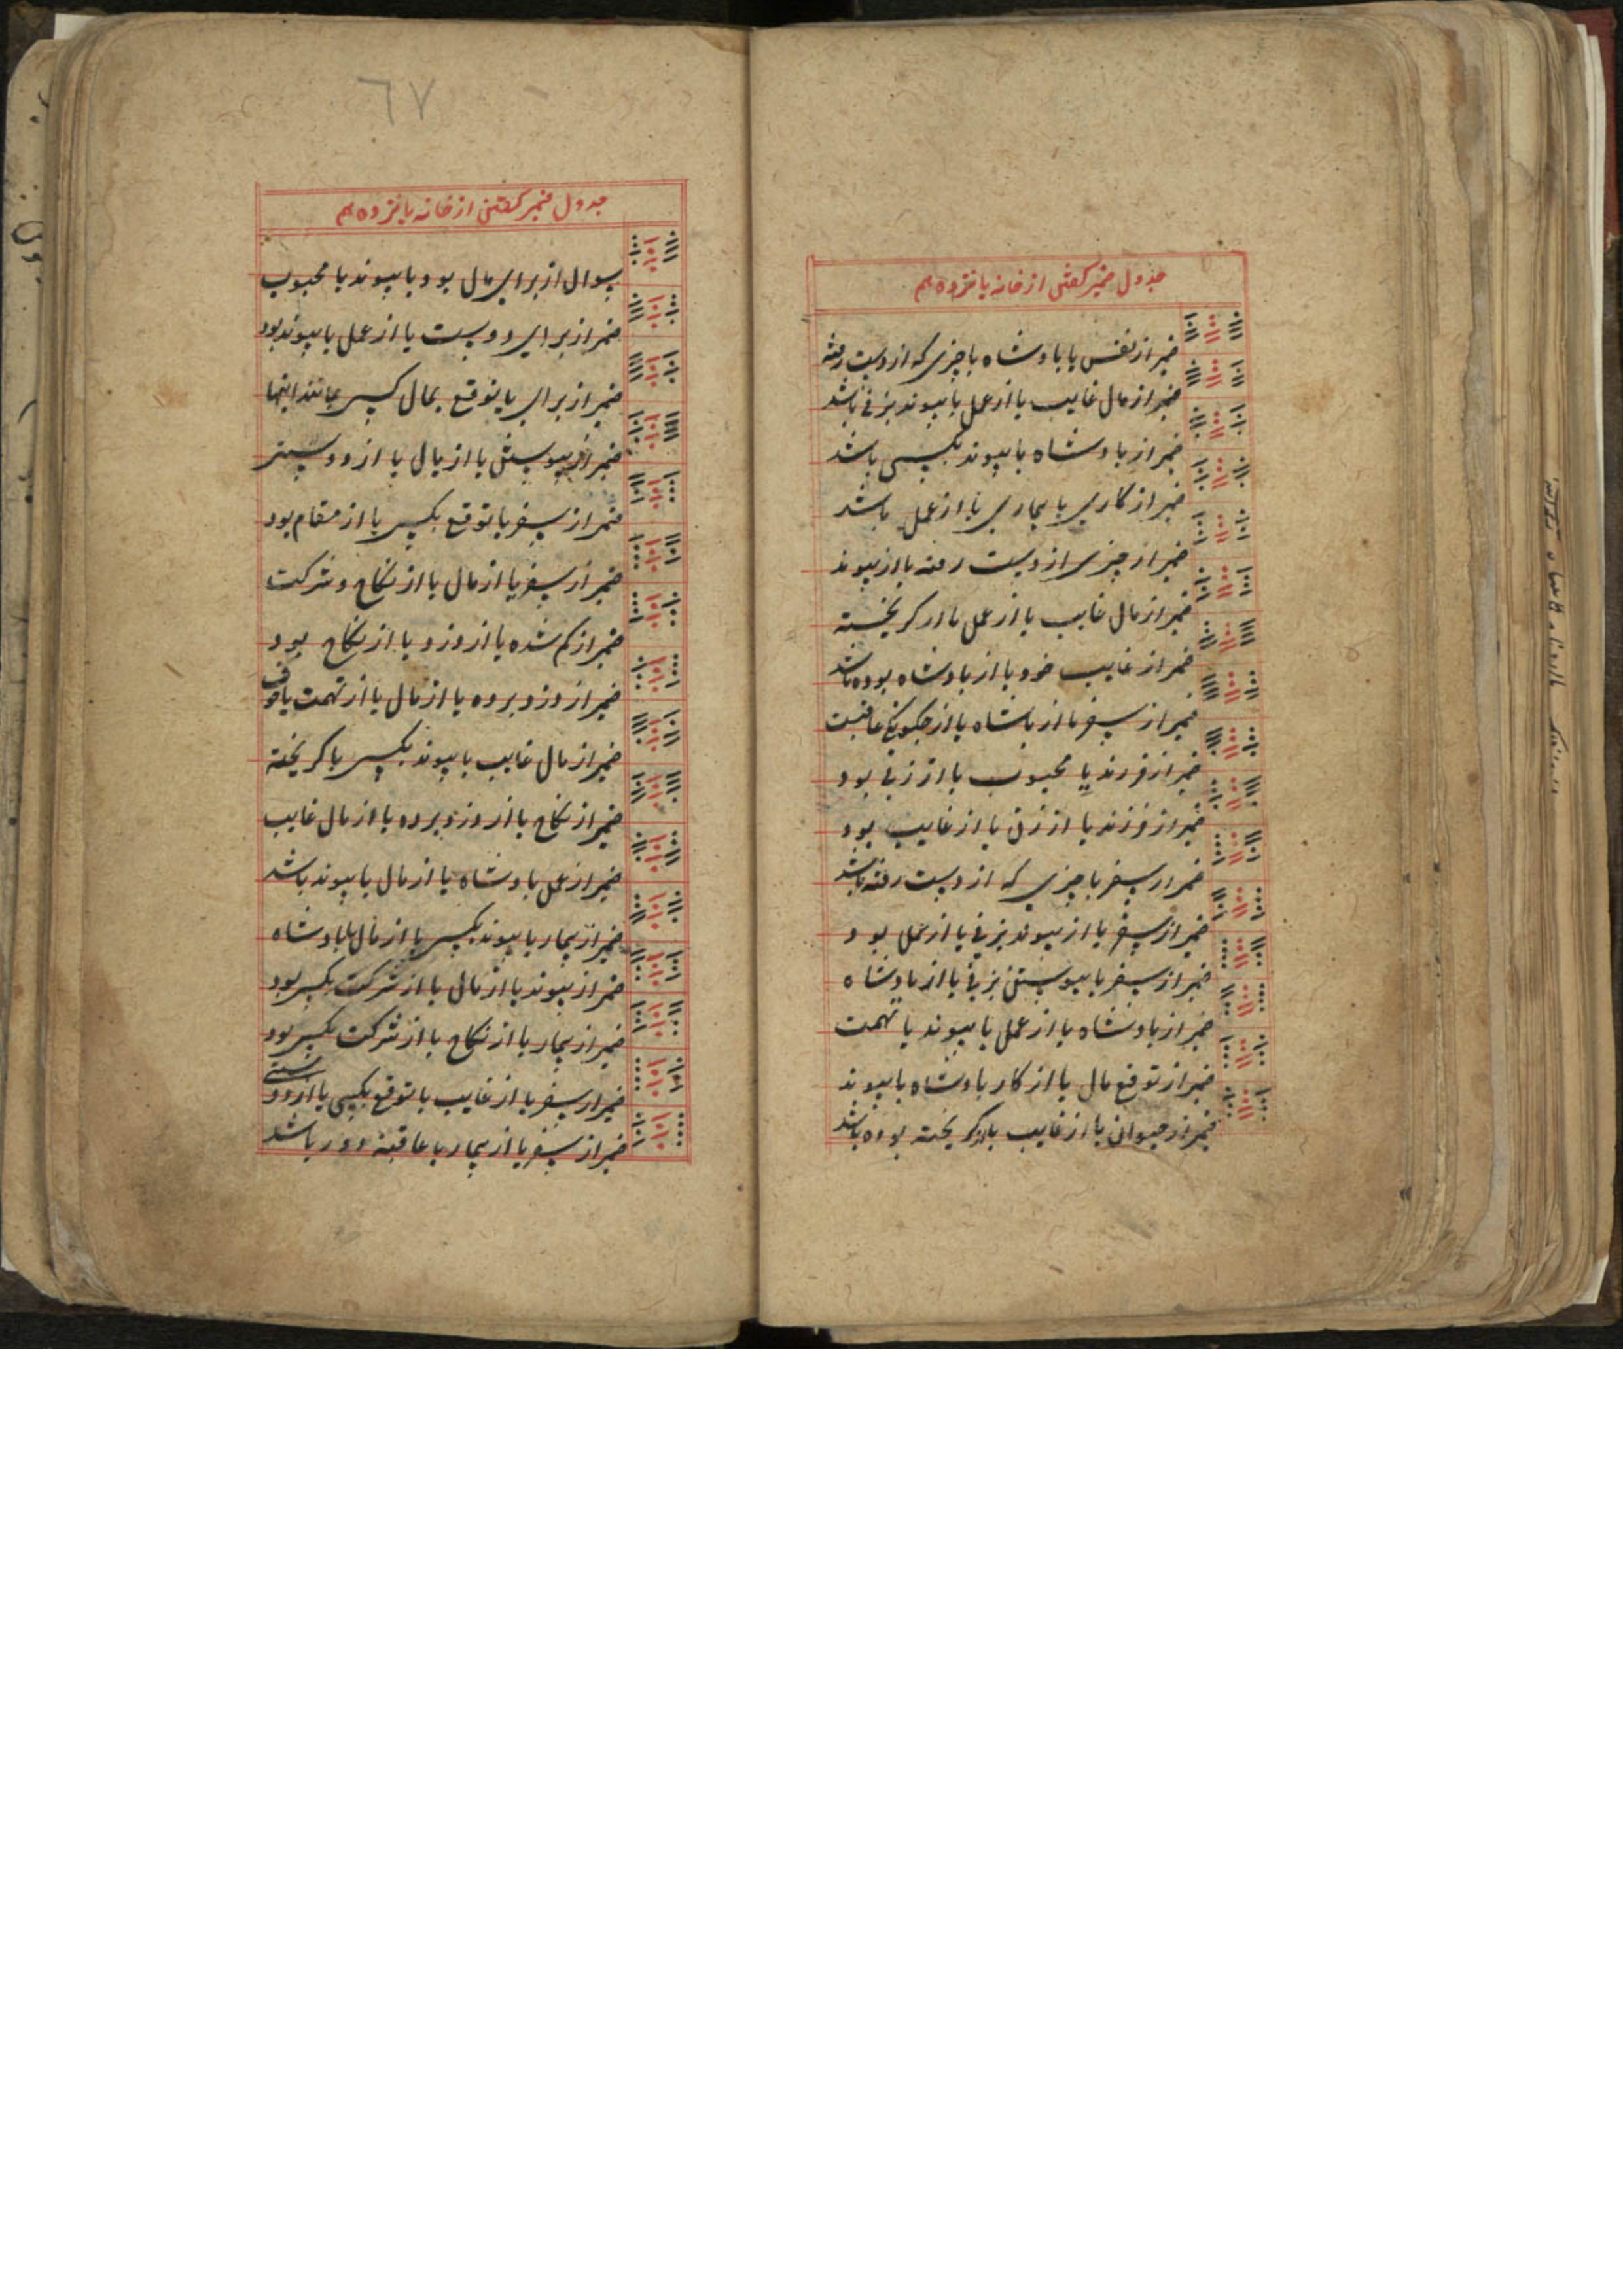 جدول ضمیر کفتن از خانه پانزدهم
ضمیر از نفس یا پادشاه یا چیزی که از دست رفته
ضمیر از مال غایب یا از عمل یا پیوند بزنی باشد
ضمیر از پادشاه یا پیوند بکسی باشد
ضمیر از کاری یا بیماری یا از عمل باشد
ضمیر از چیزی از دست رفته یا از پیوند
ضمیر از مال غایب یا از عمل یا از کریخته
ضمیر از غایب خود یا از پادشاه بوده باشد
ضمیر از سفر یا از پادشاه یا از چکونکی عاقبت
ضمیر از فرزند یا محبوب یا از زنی بود
ضمیر از فرزند یا از زن یا از غایب بود
ضمیر از سفر یا چیزی که از دست رفته باشد
ضمیر از سفر یا از پیوند بزنی یا از عمل بود
ضمیر از سفر یا پیوستن بزنی یا از پادشاه
ضمیر از پادشاه یا از عمل یا پیوند یا تهمت
ضمیر از توقع مال یا از کار پادشاه یا پیوند
ضمیر از حیوانی یا از غایب یا از کریخته بوده باشد
٦٧
جدول ضمیر کفتن از خانه پانزدهم
سوال از برای مال بود یا پیوند یا محبوب
ضمیر از برای دوست یا از عمل یا پیوند بود
ضمیر از برای یا توقع بمال کسی بمانند اینها
ضمیر از پیوستن یا از مال یا از دوستی
ضمیر از سفر یا توقع بکسی یا از مقام بود
ضمیر از سفر یا از مال یا از نکاح و شرکت
ضمیر از کم شده یا از دزد یا از نکاح بود
ضمیر از دزد برده یا از مال یا از تهمت یا خوف
ضمیر از مال غایب یا پیوند بکسی یا کریخته
ضمیر از نکاح یا از دزد برده یا از مال غایب
ضمیر از عمل پادشاه یا از مال یا پیوند باشد
ضمیر از بیمار یا پیوند بکسی یا از مال پادشاه
ضمیر از پیوند یا از مال یا از شرکت بکسی بود
ضمیر از بیمار یا از نکاح یا از شرکت بکسی بود
ضمیر از سفر یا از غایب یا توقع بکسی یا از دوستی
ضمیر از سفر یا از بیمار یا عاقبت دور باشد